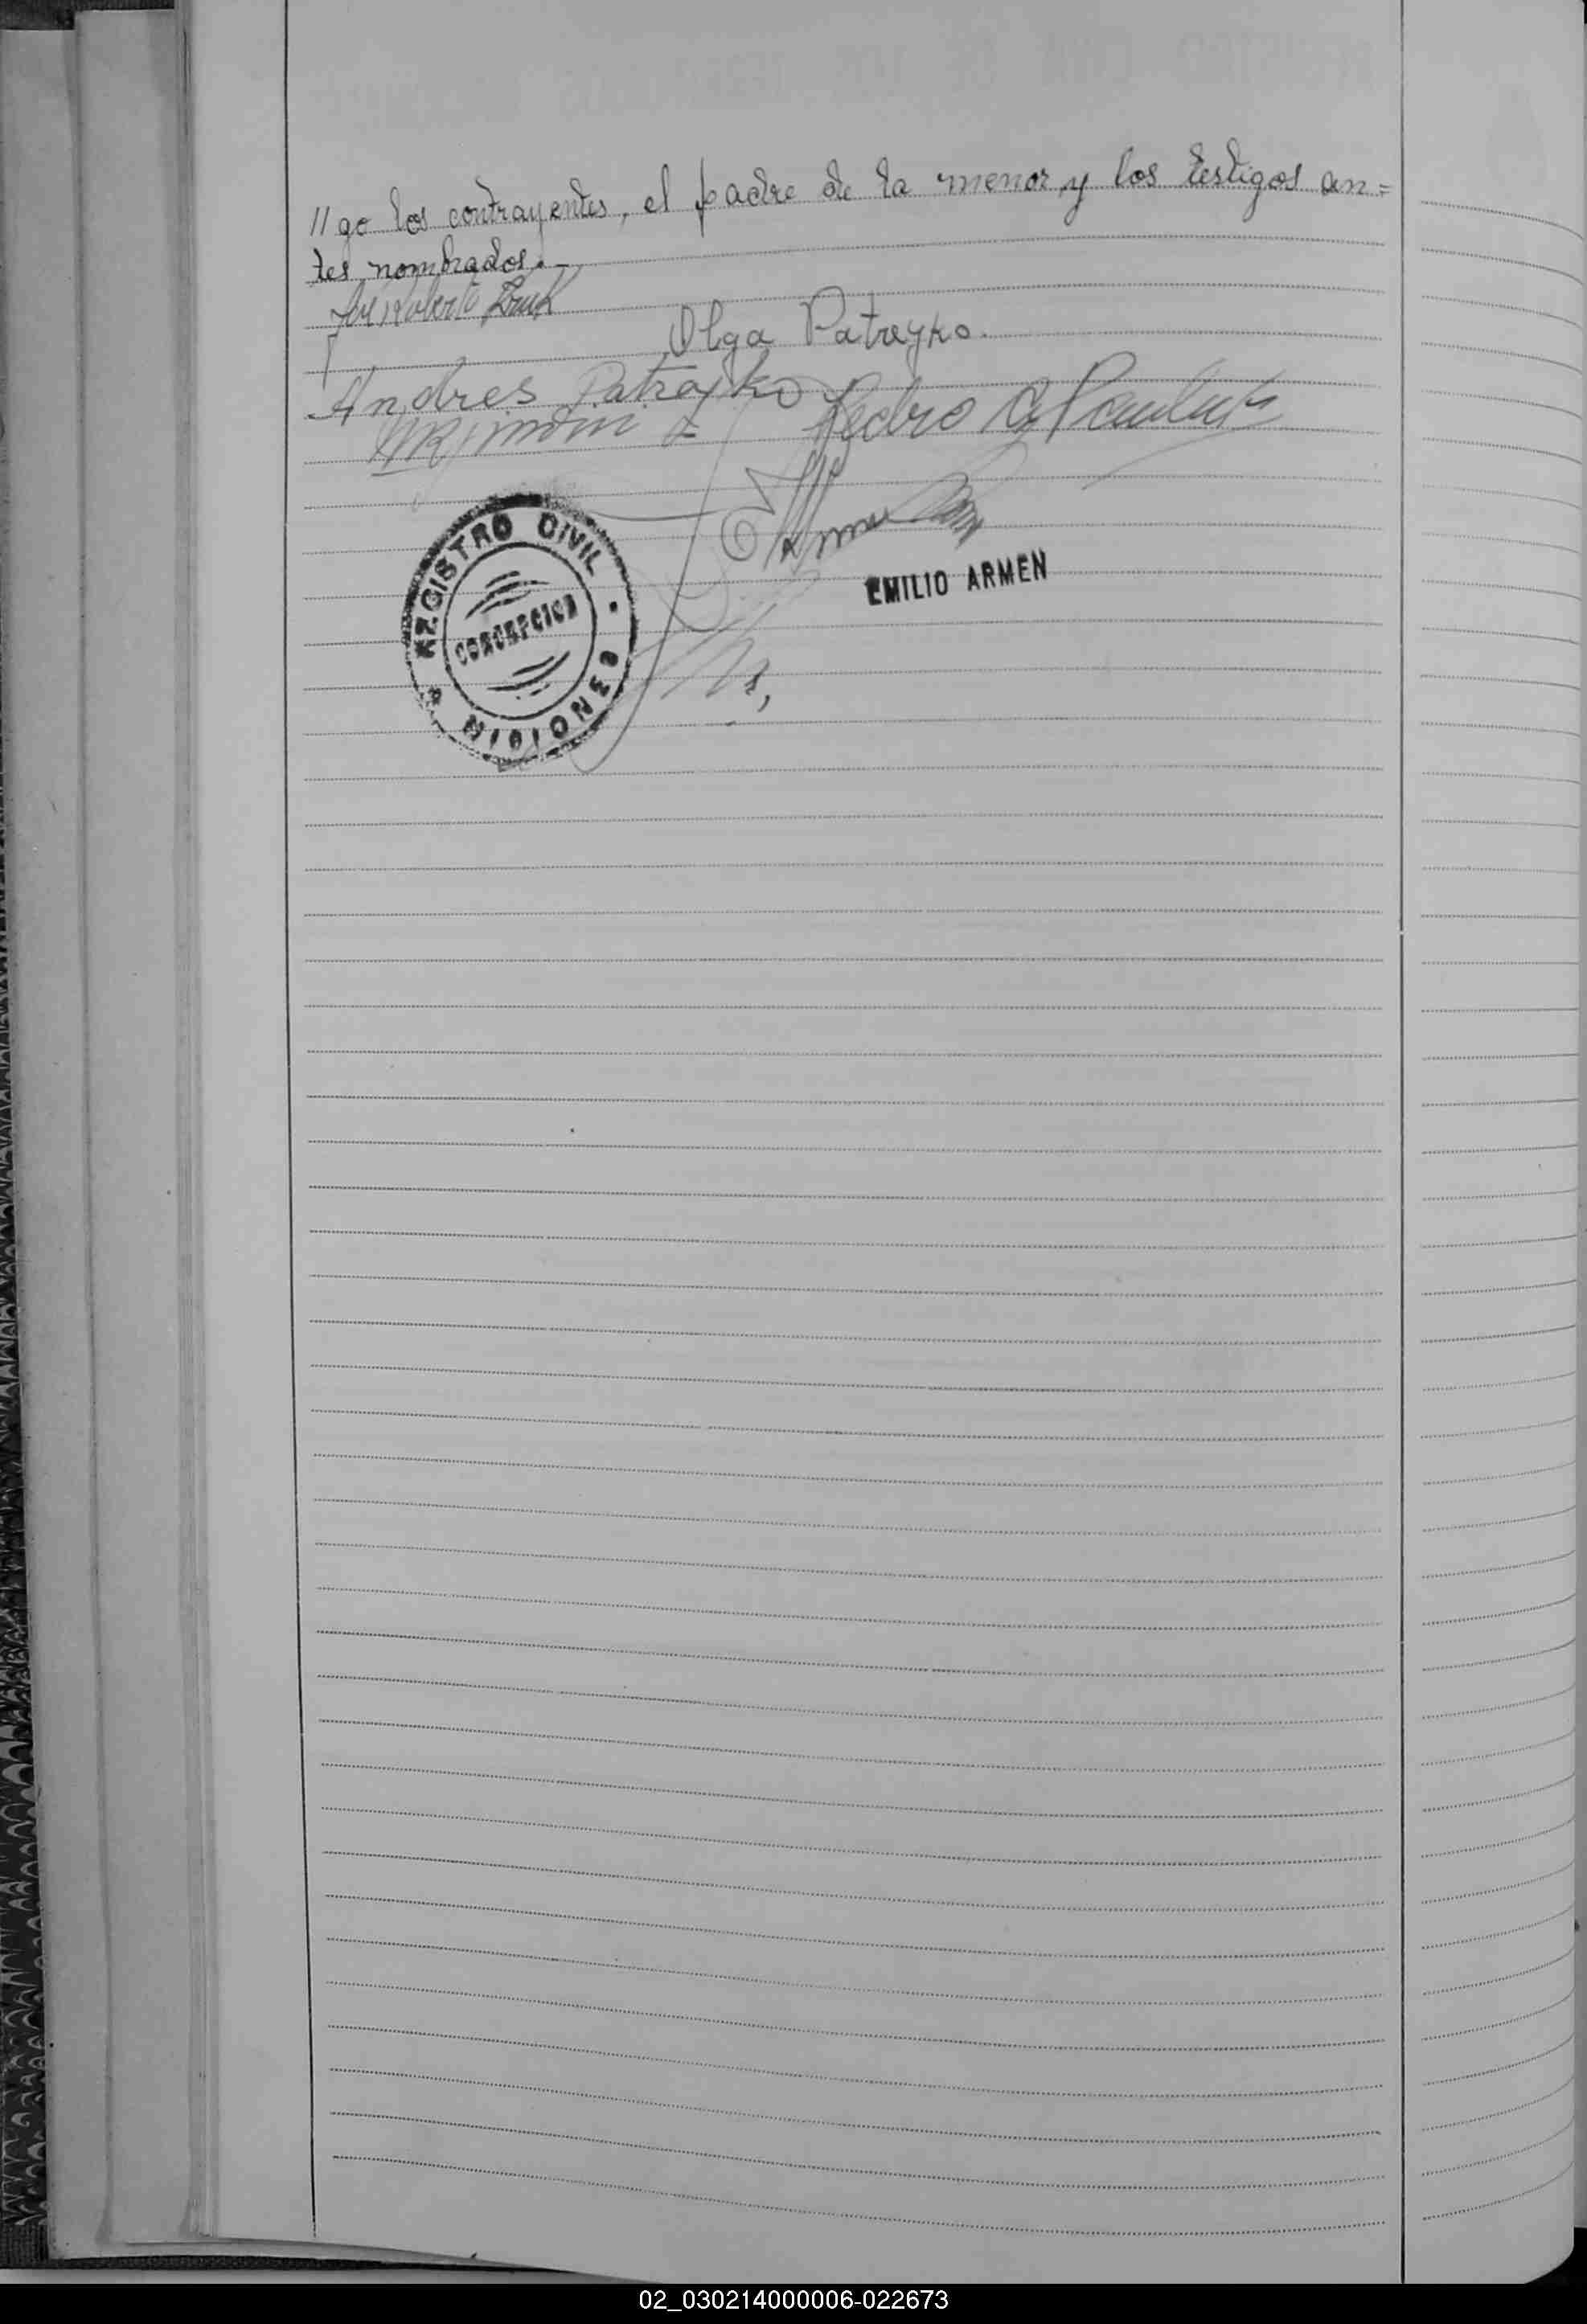 //go los contrayentes, el padre de la menor y los testigos an=
tes nombrados.-
José Roberto
Olga Patreyko.
Andres Patrayko
Pedro
REGISTRO CIVIL
CONCEPCION
MISIONES
EMILIO ARMEN
02_030214000006-022673